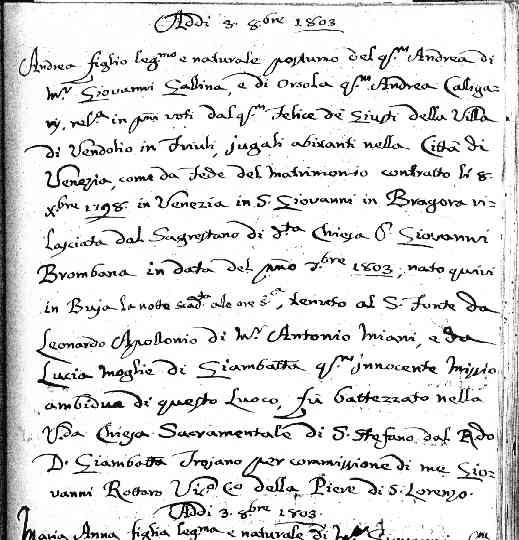 Addi 3. 8bre 1803
Andrea figlio legmo e naturale postumo del qm Andrea di
mr Giovanni Gallina, e di Orsola qm Andrea Caliga=
ri, relta in pmi voti dal qm Felice de Giusti della Villa
di Vendolio in Friuli, jugali abitanti nella Città di
Venezia, come da fede del matrimonio contratto li 8.
xbre 1798. in Venezia in S. Giovanni in Bragora ri=
lasciata dal Sagrestano di dta Chiesa Giovanni
Brombana in data del pmo 7bre 1803, nato quivi
in Buja la notte scadta alle ore, tenuto al S. fonte da
Leonardo Apollonio di mr Antonio Miani, e da
Lucia moglie di Giambatta qm Innocente Missio
ambidue di questo Luoco, fù battezzato nella
Vda Chiesa Sacramentale di S. Stefano dal Rdo
D. Giambatta Trojano per commissione di me Gio=
vanni Rottaro Vico Co della Pieve di S. Lorenzo.
Addi 3. 8bre 1803.
Maria Anna figlia legma e naturale di